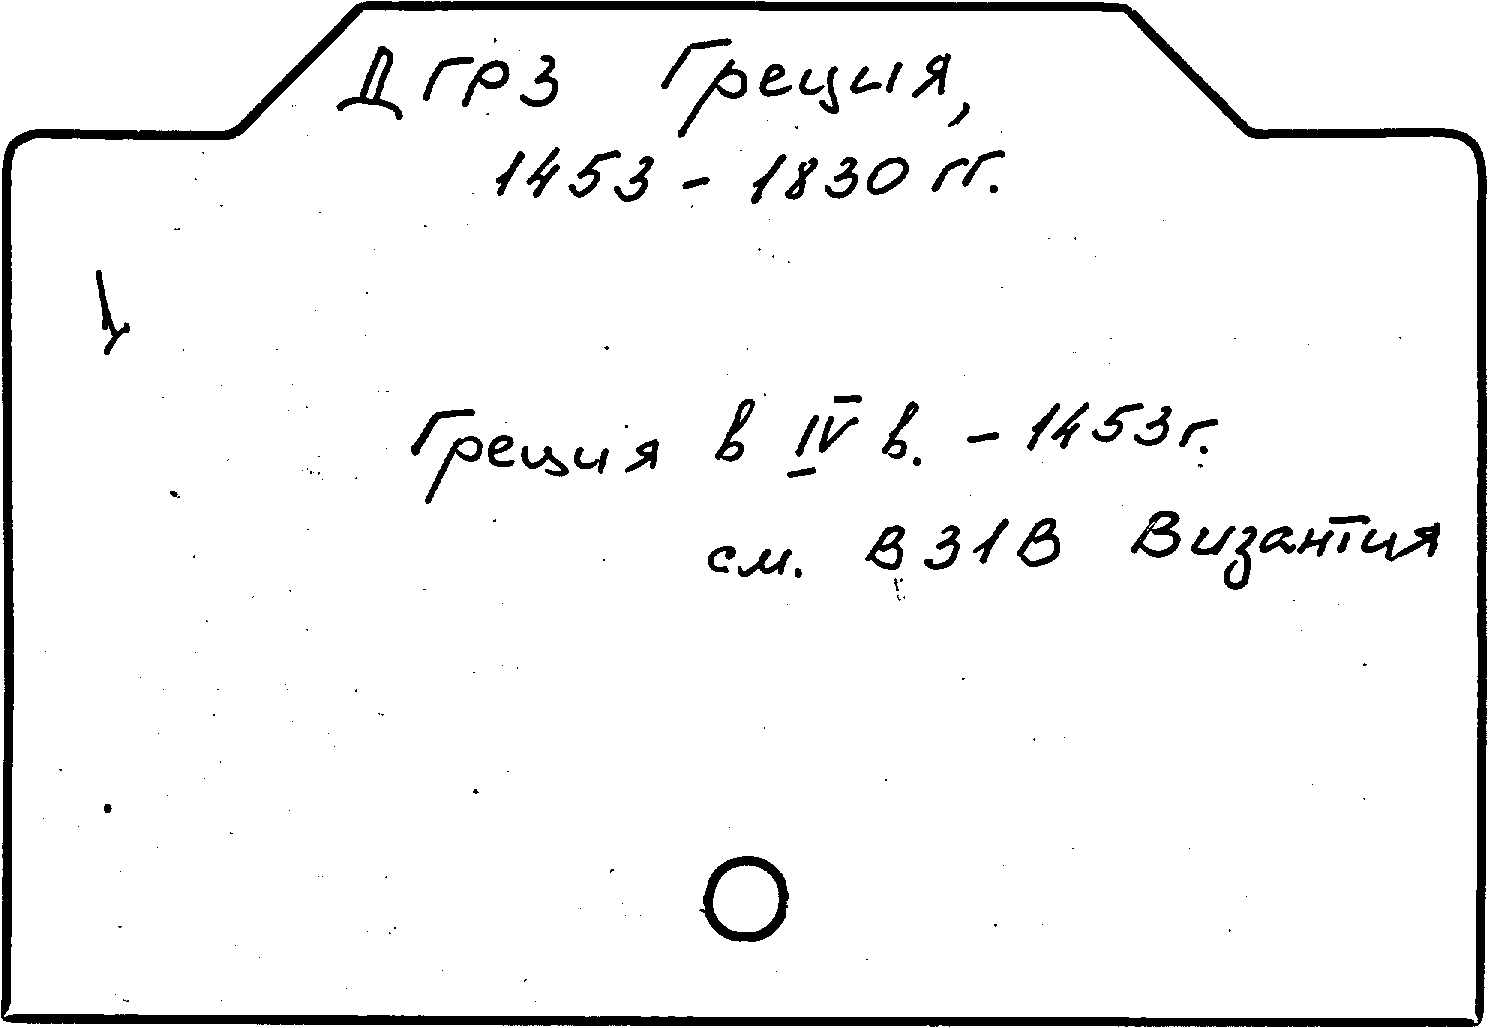 ДГРЗ Греция,
1453 - 1830 гг.
Греция в IV в. - 1453 г.
см. В31В Византия